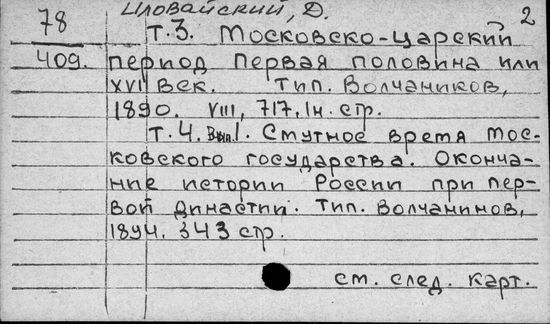 78 Иловайский, Д. 2
т.3. Московско-царский
409. период Первая половина или
XVI век. Тип. Волчанинов,
1890. VIII, 717, 1н. стр.
т.4. Вып.1. Смутное время Мос-
ковского государства. Оконча-
ние истории России при пер-
вой династии. Тип. Волчанинов,
1894. 343 стр.
см. след. карт.